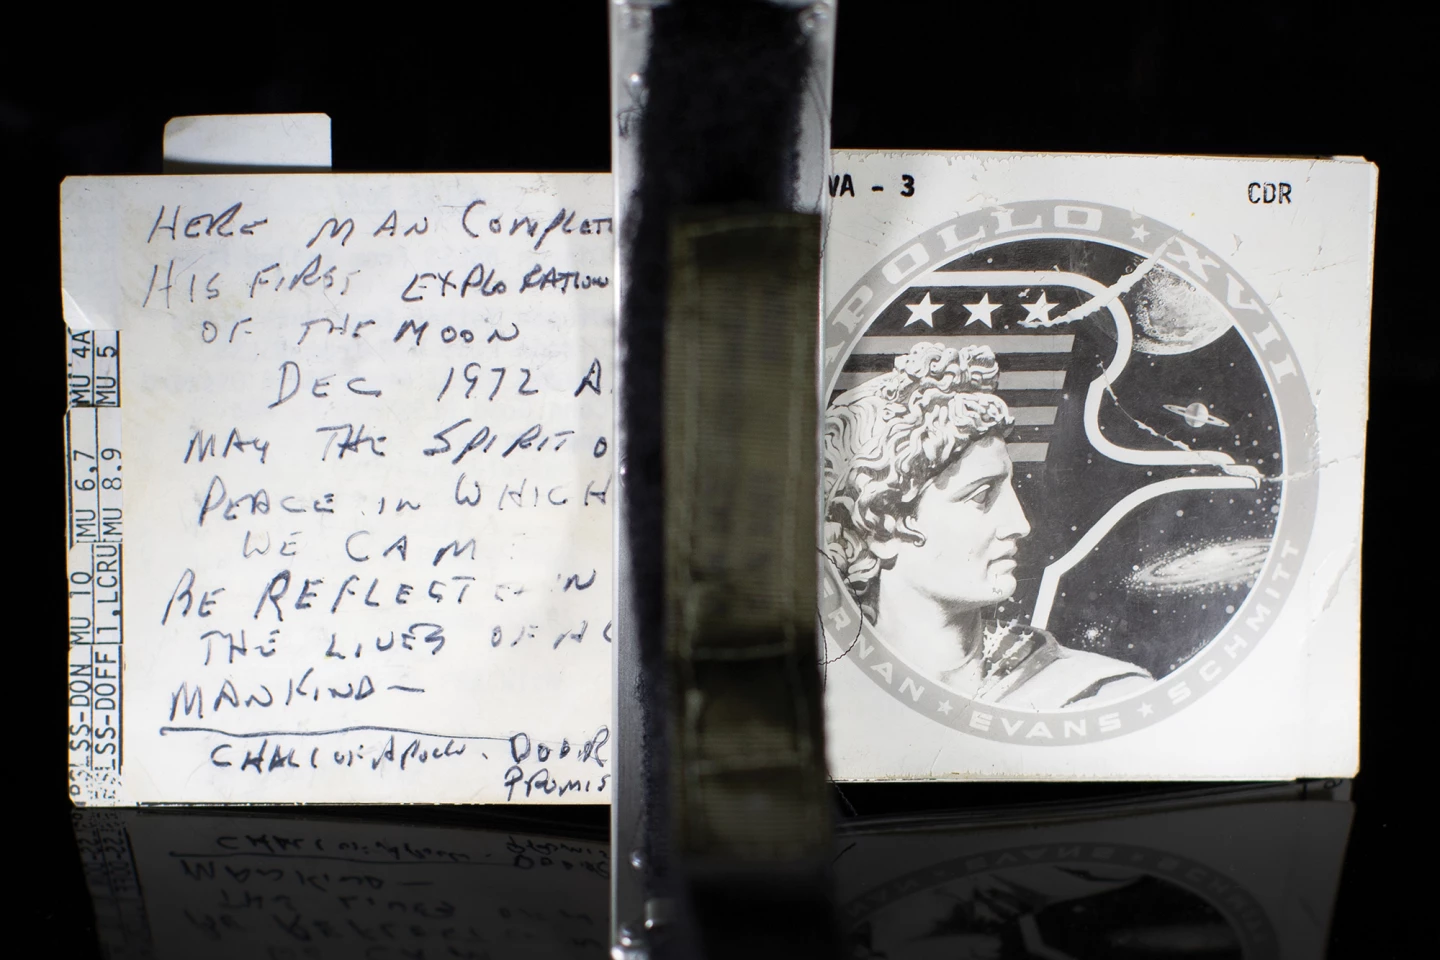 HERE MAN COMPLET
HIS FIRST EXPLORATION
OF THE MOON
DEC 1972 A.
MAY THE SPIRIT O
PEACE IN WHICH
WE CAM
BE REFLECT IN
THE LIVES OF AL
MANKIND —
CHALL
PROMIS
MU 4A
MU 5
MU 6,7
MU 8.9
MU 10
1.LCRU
SS-DON
SS-DOFF
VA - 3
CDR
APOLLO ★ XVII
RNAN ★ EVANS ★ SCHMITT